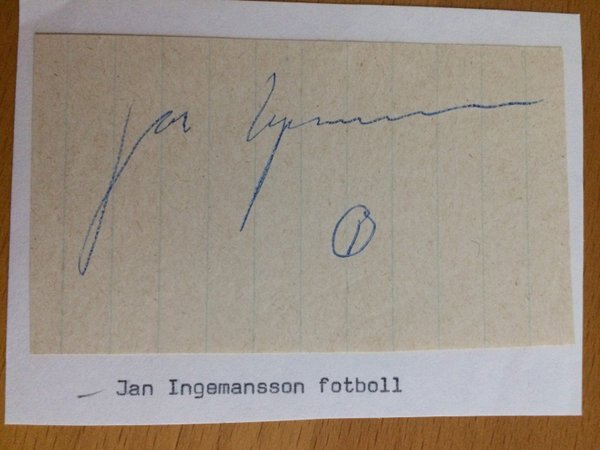 Jan Ingemansson
①
– Jan Ingemansson fotboll